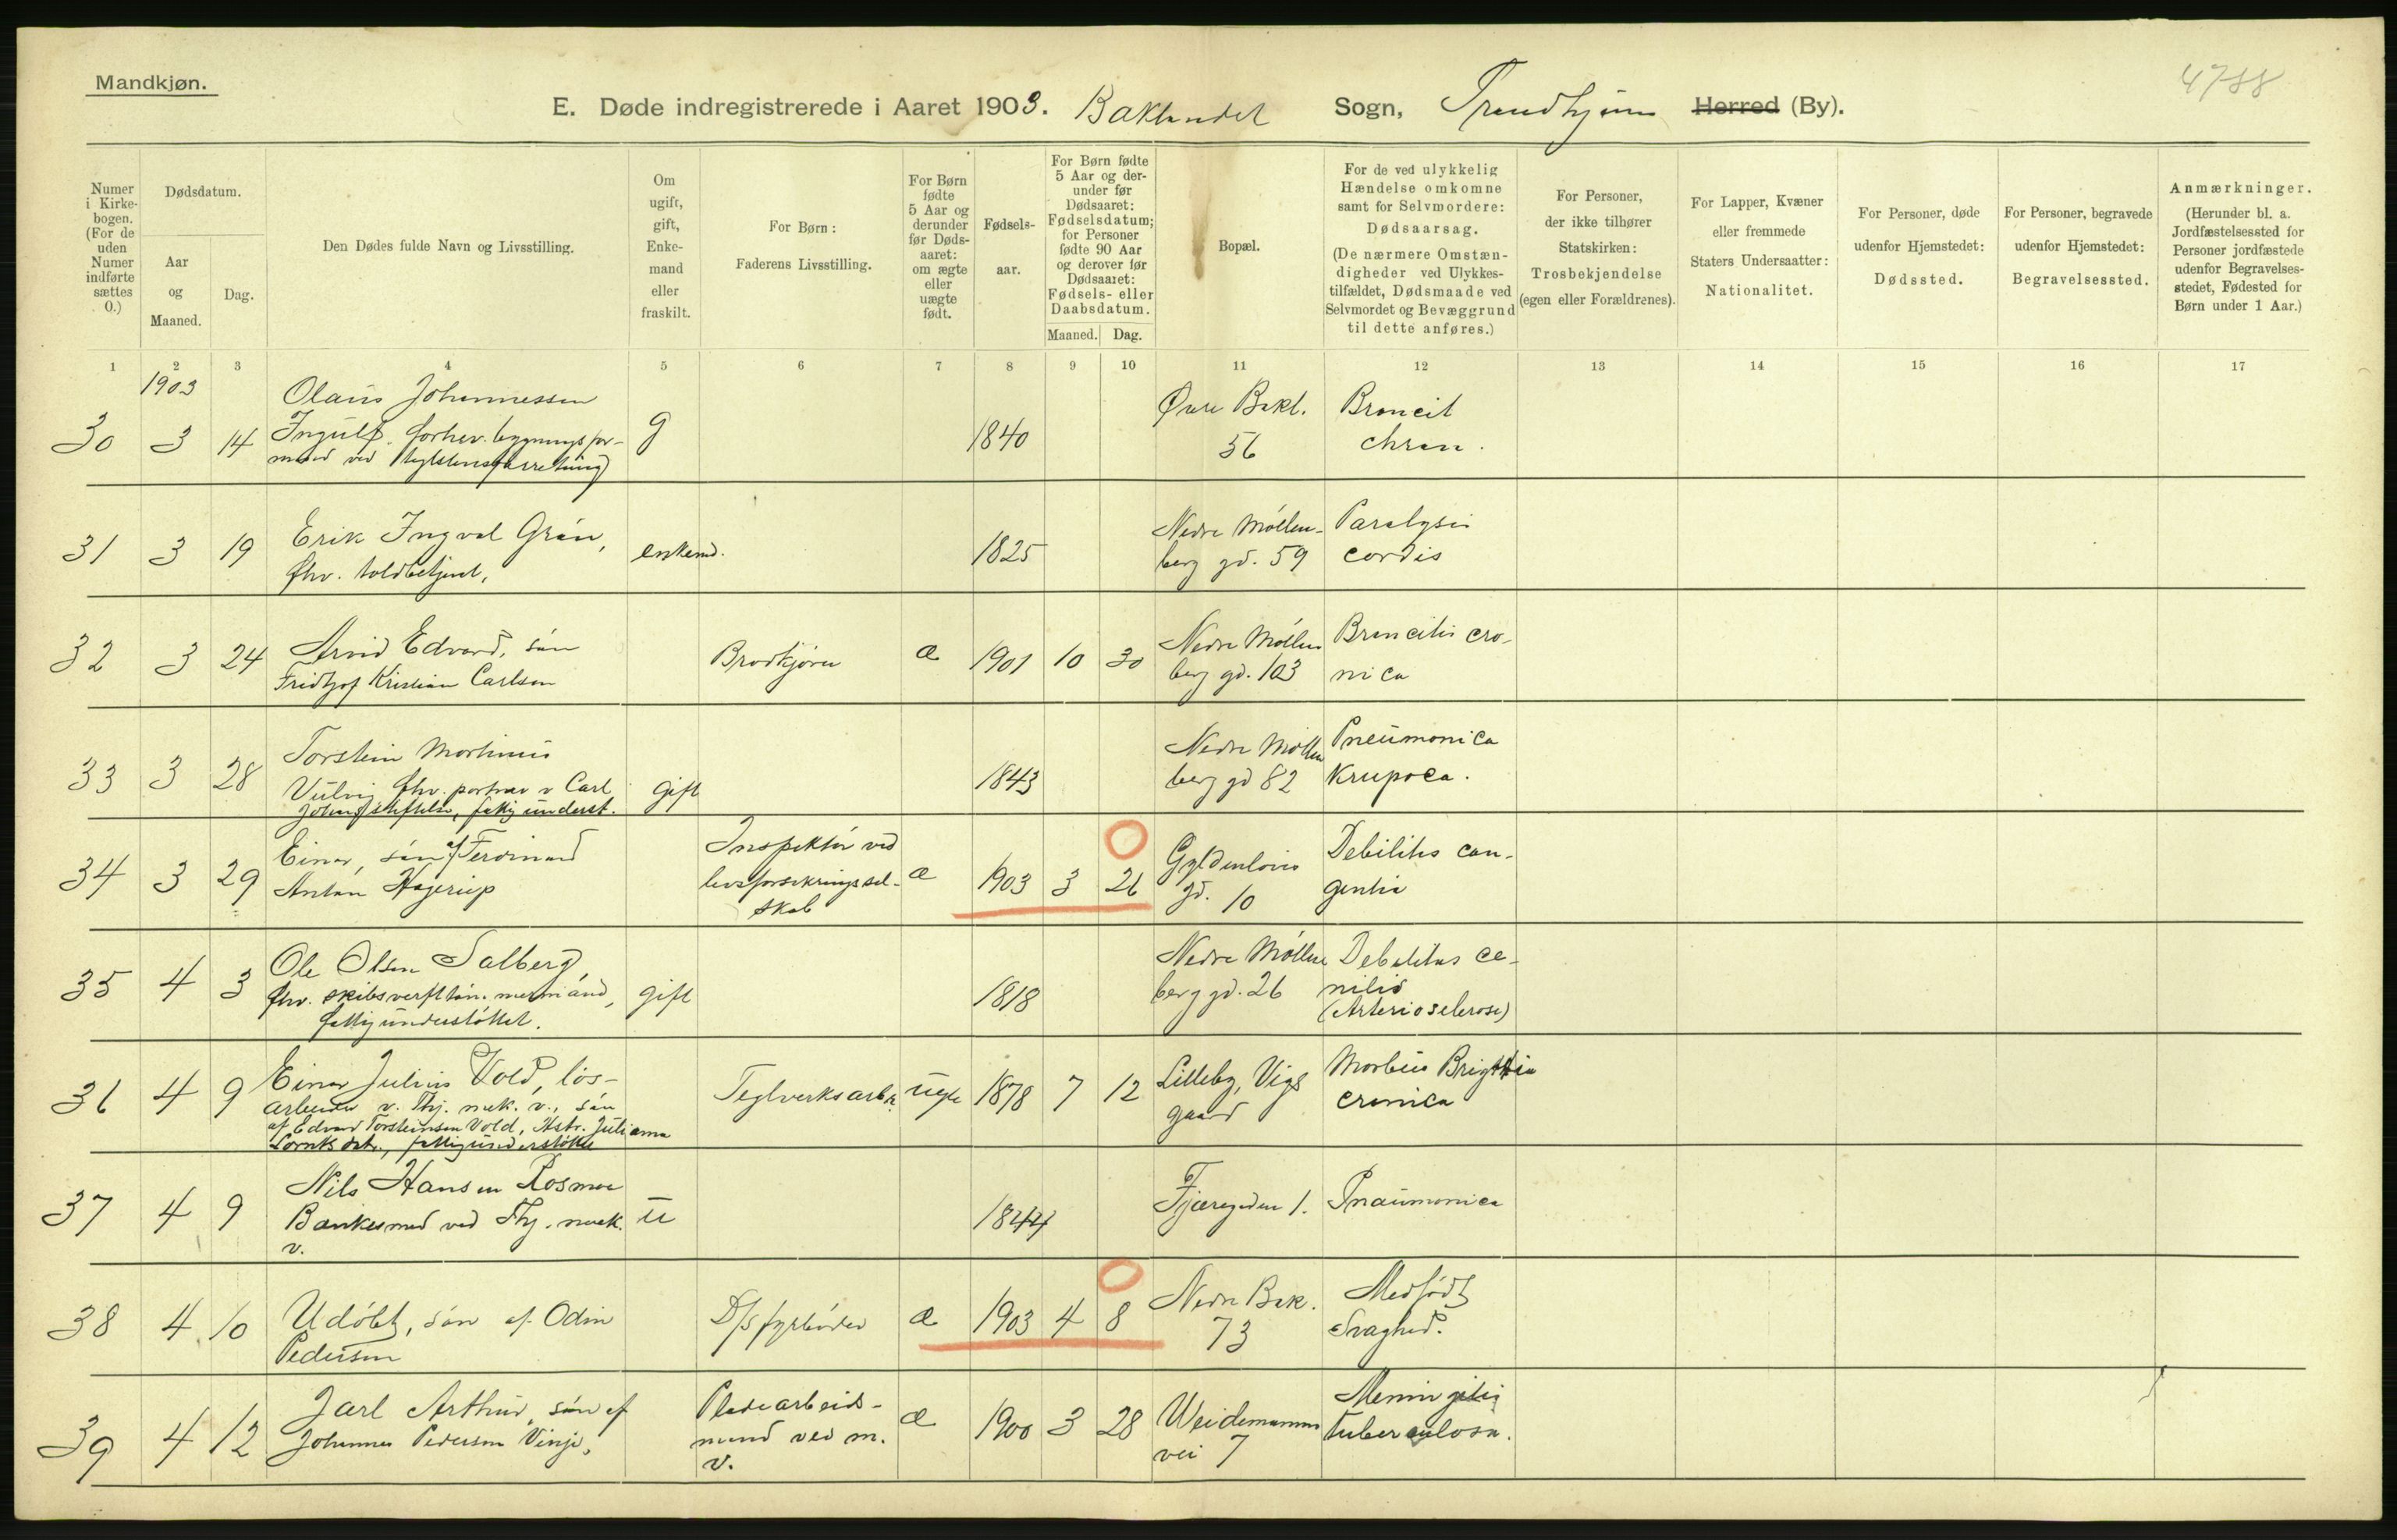 Mandkjøn.
4788
E. Døde indregistrerede i Aaret 1903. Baklandet Sogn, Trondhjem Herred (By).
Numer i Kirkebogen. (For de uden Numer indførte sættes 0.)
Dødsdatum.
Aar og Maaned.
Dag.
Den Dødes fulde Navn og Livsstilling.
Om ugift, gift, Enkemand eller fraskilt.
For Børn: Faderens Livsstilling.
For Børn fødte 5 Aar og derunder før Dødsaaret: om ægte eller uægte født.
Fødselsaar.
For Børn fødte 5 Aar og derunder før Dødsaaret: Fødselsdatum; for Personer fødte 90 Aar og derover før Dødsaaret: Fødsels- eller Daabsdatum.
Maaned. Dag.
Bopæl.
For de ved ulykkelig Hændelse omkomne samt for Selvmordere: Dødsaarsag. (De nærmere Omstændigheder ved Ulykkestilfældet, Dødsmaade ved Selvmordet og Bevæggrund til dette anføres.)
For Personer, der ikke tilhører Statskirken: Trosbekjendelse (egen eller Forældrenes).
For Lapper, Kvæner eller fremmede Staters Undersaatter: Nationalitet.
For Personer, døde udenfor Hjemstedet: Dødssted.
For Personer, begravede udenfor Hjemstedet: Begravelsessted.
Anmærkninger. (Herunder bl. a. Jordfæstelsessted for Personer jordfæstede udenfor Begravelsesstedet, Fødested for Børn under 1 Aar.)
1 2 3 4 5 6 7 8 9 10 11 12 13 14 15 16 17
1903
30 3 14 Olaus Johannessen
Ingulf. forhv. bygningsformand ved g 1840 Øvre Bakl. 56 Broncit chron.
31 3 19 Erik Ingval Grön,
fhv. toldbetjent, enkemd. 1825 Nedre Möllenberg gd. 59 Paralysis cordis
32 3 24 Arvid Edvard, sön
Fridtjof Kristian Carlsen Brodkjörer æ 1901 10 30 Nedre Möllenberg gd. 103 Broncitis cronica
33 3 28 Torstein Martinus
Vulvig fhv. portner v Carl
Johans stiftelse, fattig underst. gift 1843 Nedre Möllenberg gd 82 Pneumonica Krupoca.
34 3 29 Einar, sön af Ferdinand
Anton Hagerup Inspektör ved livsforsikringsselskab æ 1903 3 26 Gyldenlöves gd. 10 Debilitas congentia
35 4 3 Ole Olsen Salberg,
fhv. skibsverfttömmermand,
fattigunderstöttet. gift 1818 Nedre Möllenberg gd. 26 Debilitas cenilis
(Arteriosclerose)
36 4 9 Einar Julius Vold, lösarbeider v. Thj. mek. v., sön
af Edvard Torsteinsen Vold, Julianna
fattigunderstöttet Teglverksarb. uegte 1878 7 12 Lilleby, Vigs gaard Morbus Brigthii cronica
37 4 9 Nils Hansen Rosmoe
Bankesmed ved Thj. mek. v. u 1844 Fjæregaden 1. Pnaumonica
38 4 10 Udöbt, sön af Odin
Pedersen D/s fyrböder æ 1903 4 8 Nedre Bak. 73 Medfödt Svaghed.
39 4 12 Jarl Arthur, sön af
Johannes Pedersen Vinje, Pladearbeidsmand ved m. v. æ 1900 3 28 Weidemanns vei 7 Meningitis tuberculosa.